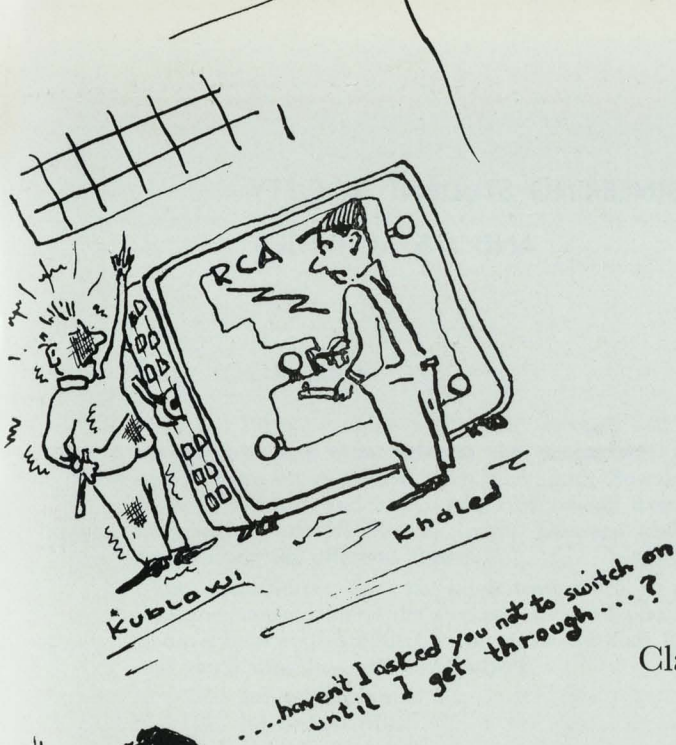 RCA
Khaled
Kublawi
....haven't I asked you not to switch on
until I get through...?
Cla